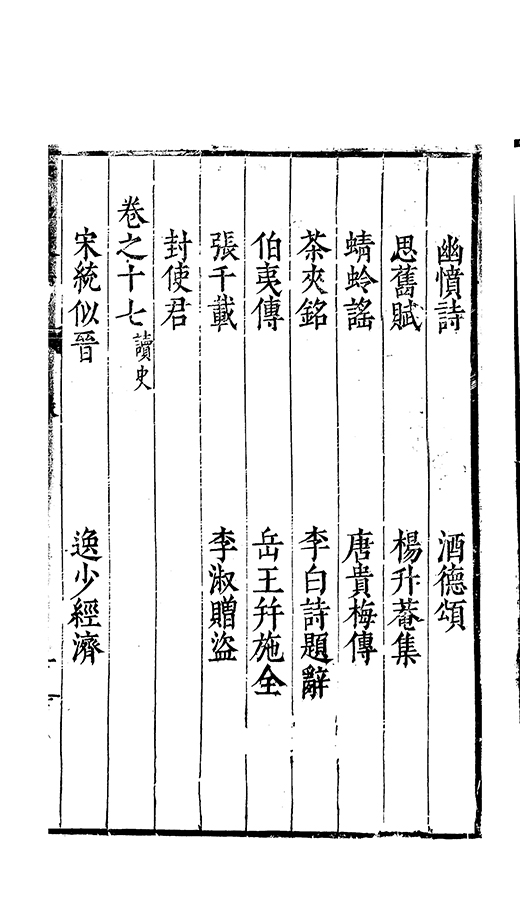 幽憤詩　酒德頌
思舊賦　楊升菴集
蜻蛉謠　唐貴梅傳
茶夾銘　李白詩題辭
伯夷傳　岳王幷施全
張千載　李淑贈盜
封使君
卷之十七讀史
宋統似晉　逸少經濟